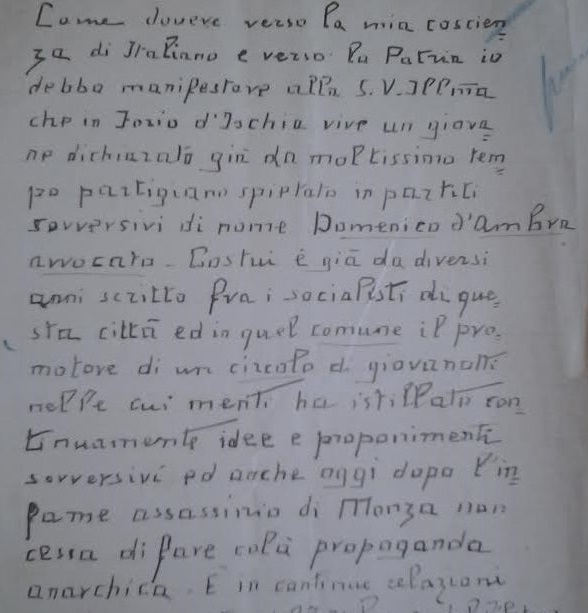 Come dovere verso la mia coscien=
za di Italiano e verso la Patria io
debbo manifestare alla S.V. Illma
che in Forio d'Ischia vive un giova=
ne dichiarato già da moltissimo tem=
po partigiano spietato in partiti
sovversivi di nome Domenico d'Ambra
avvocato. Costui è già da diversi
anni scritto fra i socialisti di que=
sta città ed in quel comune il pro=
motore di un circolo di giovanotti
nelle cui menti ha istillato con=
tinuamente idee e proponimenti
sovversivi ed anche oggi dopo l'in=
fame assassinio di Monza non
cessa di fare colà propaganda
anarchica. È in continue relazioni